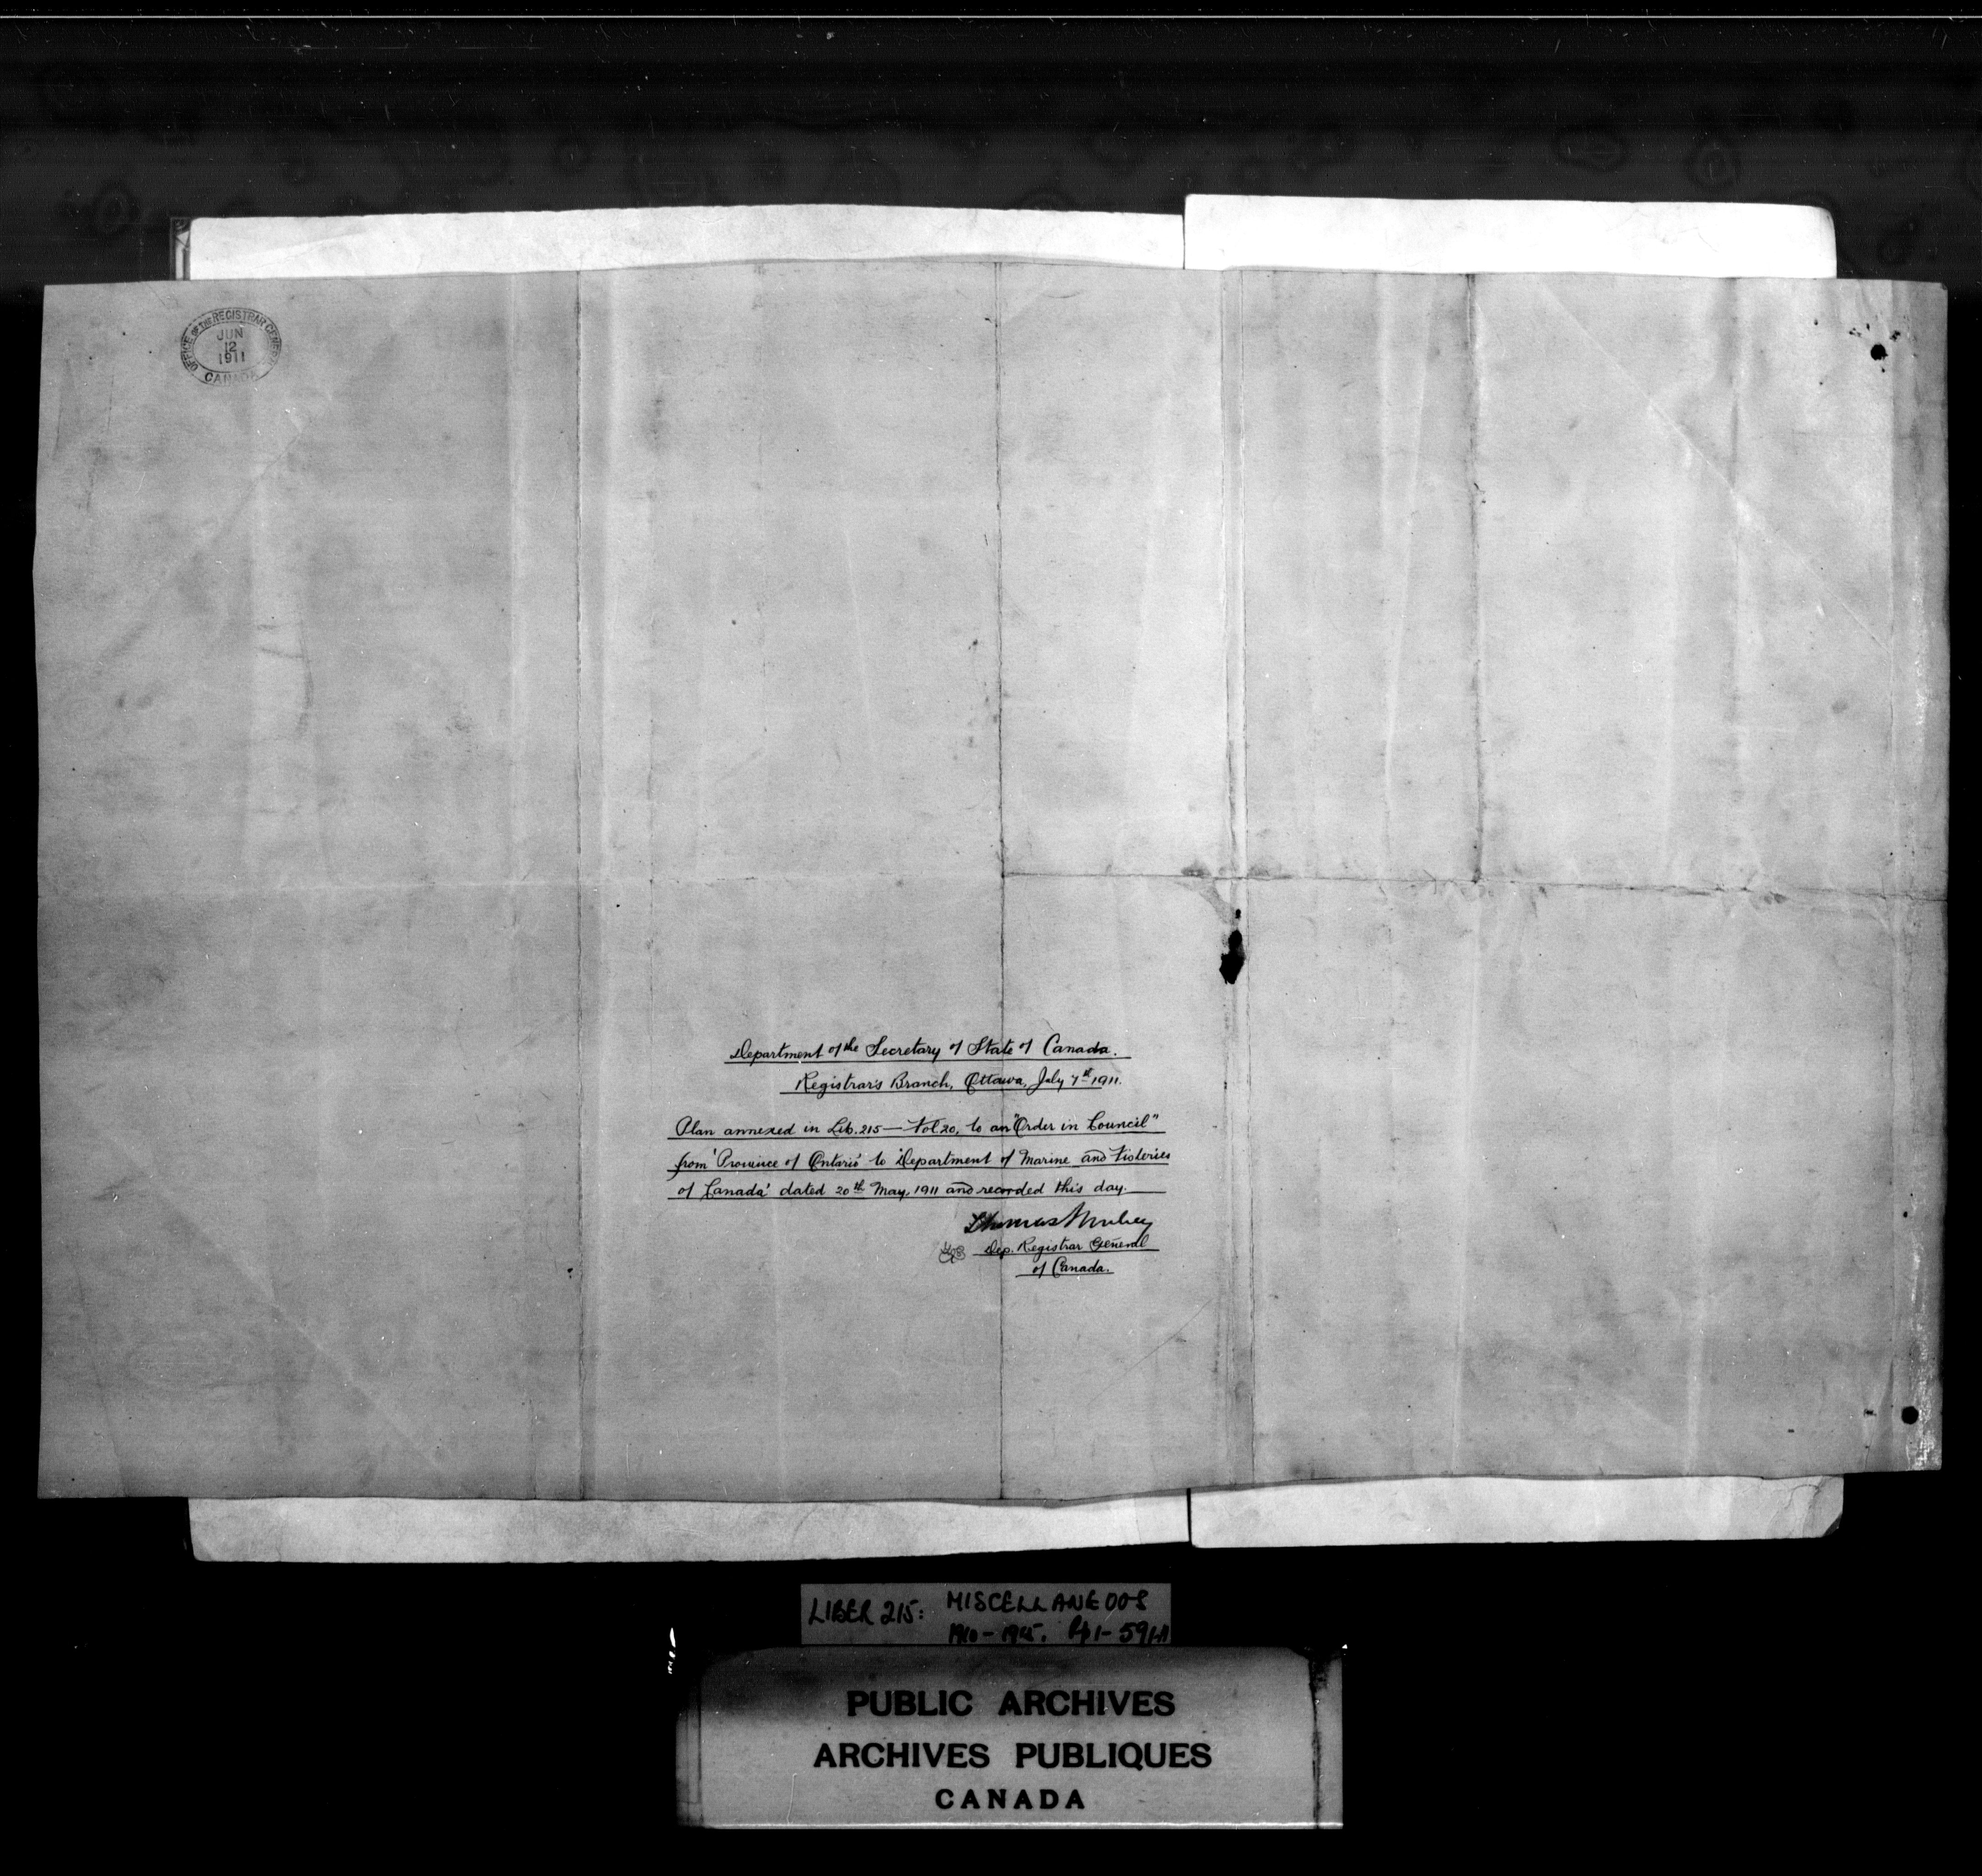 OFFICE OF THE REGISTRAR GENERAL
JUN
12
1911
CANADA
Department of the Secretary of State of Canada.
Registrar's Branch, Ottawa, July 7th 1911.
Plan annexed in Lib. 215 — Fol 20, to an "Order in Council"
from 'Province of Ontario' to 'Department of Marine and Fisheries
of Canada' dated 20th May, 1911 and recorded this day.
Thomas Mulvey
Dep. Registrar General
of Canada.
LIBER 215: MISCELLANEOUS
1910-1915. Pp 1-
PUBLIC ARCHIVES
ARCHIVES PUBLIQUES
CANADA